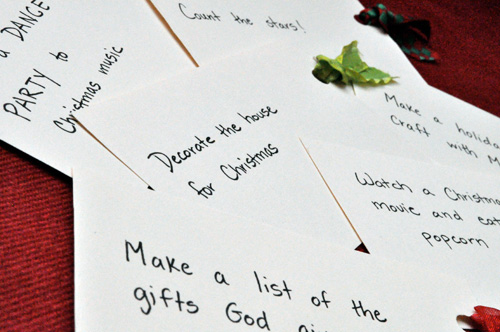 a DANCE
PARTY to
Christmas music
Count the stars!
Decorate the house
for Christmas
Make a
Craft with
Watch a
movie and eat
popcorn
Make a list of the
gifts God